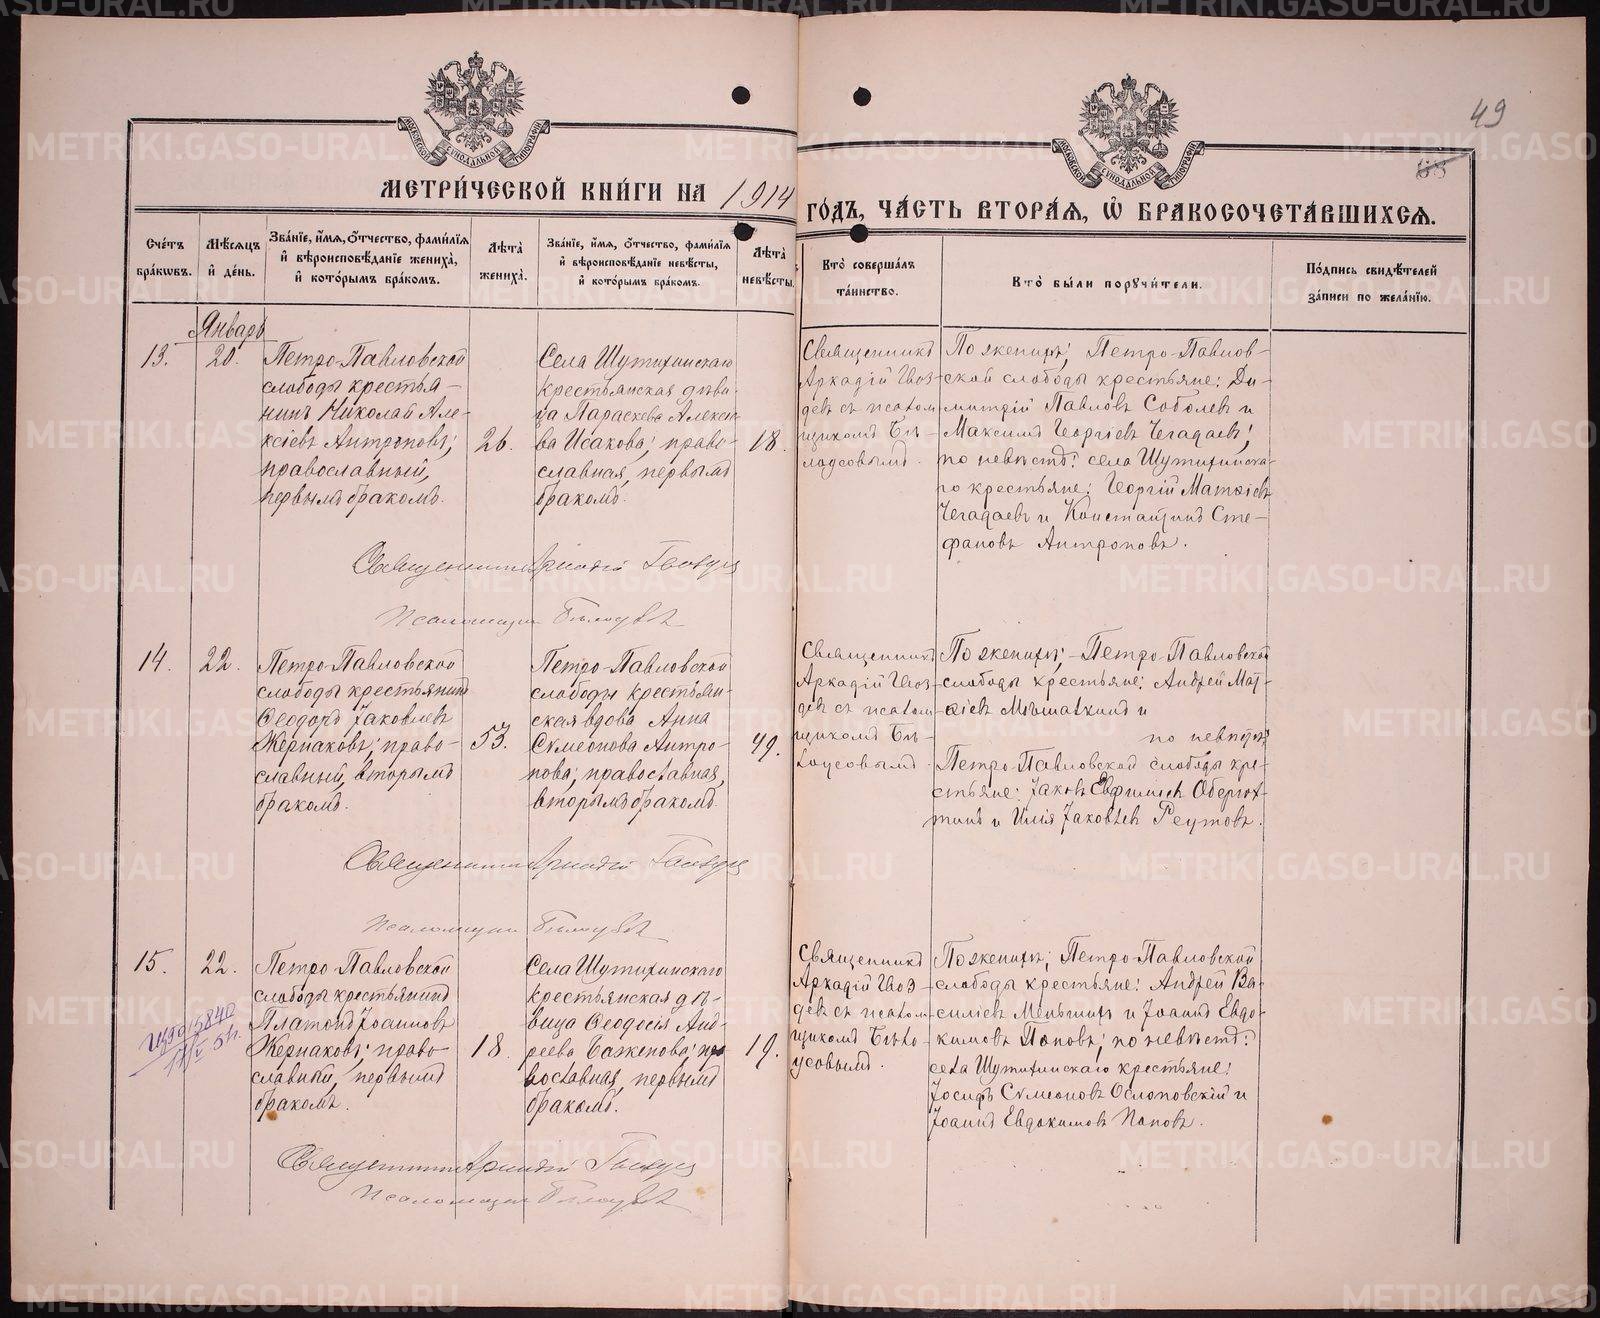 49
МОСКОВСКОЙ СѴНОДАЛЬНОЙ ТИПОГРАФІИ
МОСКОВСКОЙ СѴНОДАЛЬНОЙ ТИПОГРАФІИ
МЕТРИ́ЧЕСКОЙ КНИ́ГИ НА 1914
ГО́ДЪ, ЧА́СТЬ ВТОРА́Я, Ѡ БРАКОСОЧЕТА́ВШИХСЯ.
Сче́тъ
бра́ковъ.
Мѣ́сяцъ
и де́нь.
Зва́нїе, и́мя, о́тчество, фами́лїя
и вѣроисповѣ́данїе жениха̀,
и кото́рымъ бра́комъ.
Лѣ́та
жениха̀.
Зва́нїе, и́мя, о́тчество, фами́лїя
и вѣроисповѣ́данїе невѣ́сты,
и кото́рымъ бра́комъ.
Лѣ́та
невѣ́сты.
Кто̀ соверша́лъ
та́инство.
Кто̀ бы́ли поручи́тели.
По́дпись свидѣ́телей
за́писи по жела́нїю.
Январь
13.
20.
Петро-Павловской
слободы крестья-
нинъ Николай Але-
ксіевъ Антроповъ;
православный,
первымъ бракомъ.
26.
Села Шутихинскаго
крестьянская дѣви-
ца Параскева Алексіе-
ва Исакова; право-
славная, первымъ
бракомъ.
18.
Священникъ
Аркадій Гвоз-
девъ съ псалом-
щикомъ Бѣ-
лоусовымъ.
По женихѣ; Петро-Павлов-
ской слободы крестьяне: Ди-
митрій Павловъ Соболевъ и
Максимъ Георгіевъ Чегадаевъ;
по невѣстѣ: села Шутихинска-
го крестьяне: Георгій Матѳіевъ
Чегадаевъ и Константинъ Сте-
фановъ Антроповъ.
Священникъ Аркадій Гвоздевъ
Псаломщикъ Бѣлоусовъ
14.
22.
Петро-Павловской
слободы крестьянинъ
Ѳеодоръ Іаковлевъ
Жернаковъ; право-
славный, вторымъ
бракомъ.
53.
Петро-Павловской
слободы крестьян-
ская вдова Анна
Сѵмеонова Антро-
пова; православная,
вторымъ бракомъ.
49.
Священникъ
Аркадій Гвоз-
девъ съ псалом-
щикомъ Бѣ-
лоусовымъ.
По женихѣ; Петро-Павловской
слободы крестьяне: Андрей Мат-
ѳіевъ Мышаткинъ и
по невѣстѣ:
Петро-Павловской слободы кре-
стьяне: Іаковъ Евфиміевъ Оберюх-
тинъ и Илія Іаковлевъ Реутовъ.
Священникъ Аркадій Гвоздевъ
Псаломщикъ Бѣлоусовъ
15.
22.
Петро-Павловской
слободы крестьянинъ
Платонъ Іоанновъ
Жернаковъ; право-
славный, первымъ
бракомъ.
18.
Села Шутихинскаго
крестьянская дѣ-
вица Ѳеодосія Анд-
реева Баженова; пра-
вославная, первымъ
бракомъ.
19.
Священникъ
Аркадій Гвоз-
девъ съ псалом-
щикомъ Бѣло-
усовымъ.
По женихѣ; Петро-Павловской
слободы крестьяне: Андрей Ва-
силіевъ Меньшихъ и Іоаннъ Евдо-
кимовъ Поповъ; по невѣстѣ:
села Шутихинскаго крестьяне:
Іосифъ Сѵмеоновъ Ослоповскій и
Іоаннъ Евдокимовъ Поповъ.
Священникъ Аркадій Гвоздевъ
Псаломщикъ Бѣлоусовъ
METRIKI.GASO-URAL.RU